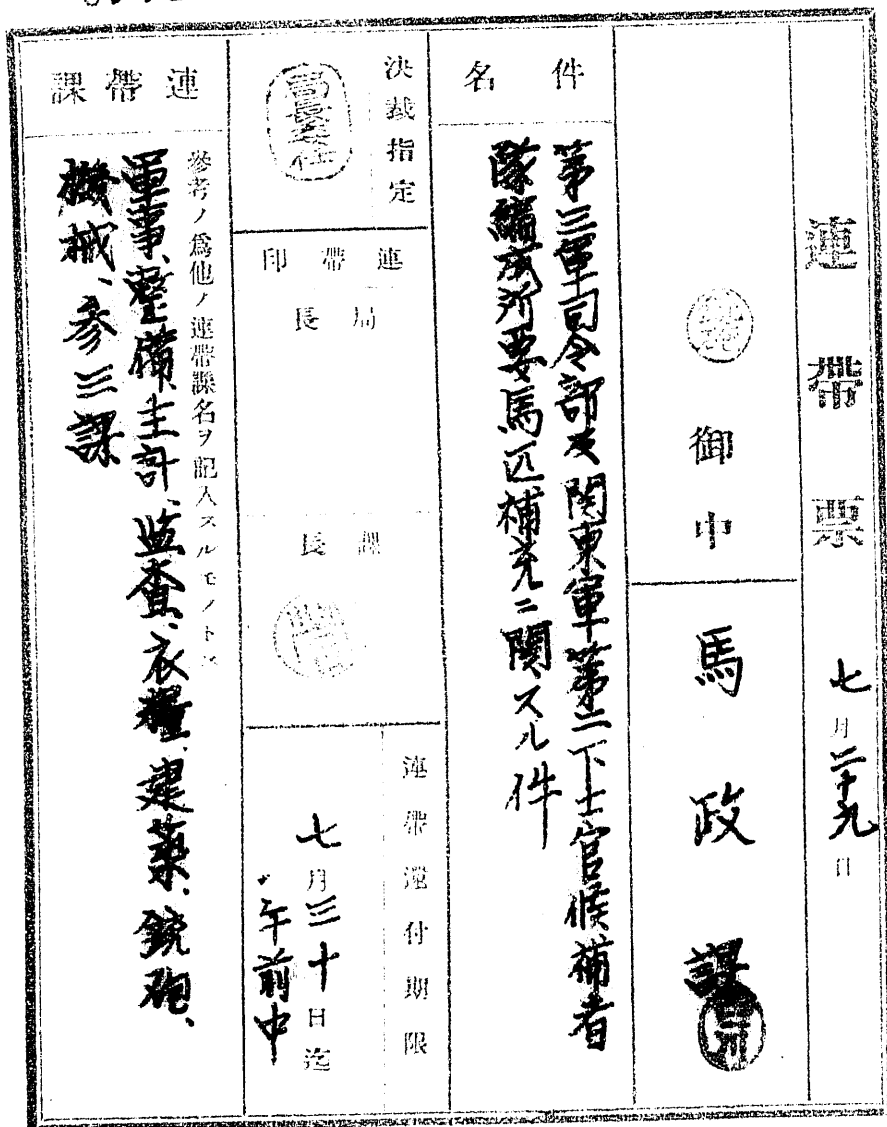 連帶票 七月二十九日
御中
馬政課
件名
第三軍司令部及関東軍第二下士官候補者
隊編成所要馬匹補充ニ関スル件
決裁指定
局長委任
連帶印
局長
課長
連帶還付期限
七月三十日迄
午前中
連帶課
參考ノ爲他ノ連帶課名ヲ記入スルモノトス
軍事、整備、主計、監査、衣糧、建築、銃砲、
機械、参三課